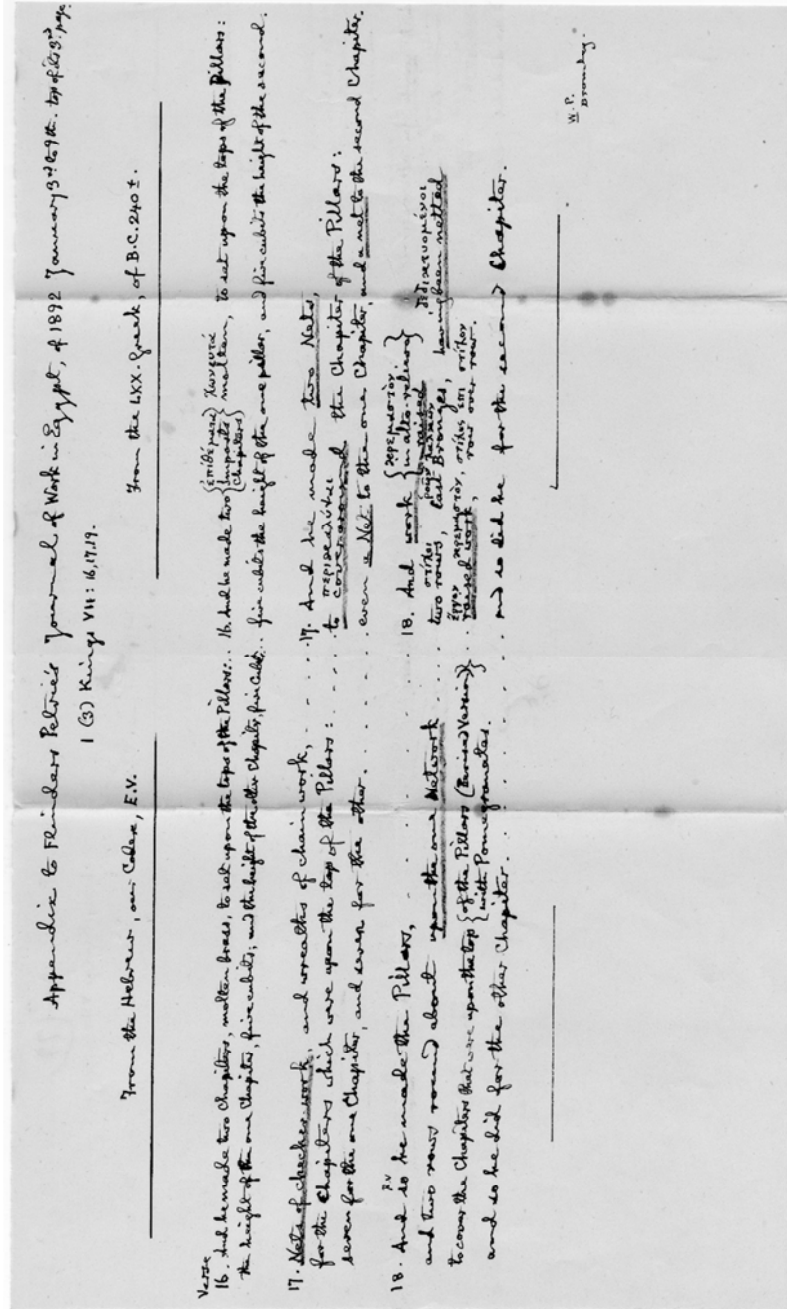 Appendix to Flinders Petrie's Journal of Work in Egypt, of 1892 January 3rd to 9th. top of its 3rd page.
1 (3) Kings VII: 16,17,19.
From the Hebrew, our Codex, E.V.
Verse
16. And he made two Chapiters, molten brass, to set upon the tops of the Pillars:...
the height of the one Chapiter, five cubits; and the height of the other Chapiter, five Cubits...
17. Nets of checker-work, and wreaths of chain work,
for the Chapiters which were upon the top of the Pillars:
seven for the one Chapiter, and seven for the other.
R.V
18. And so he made the Pillars,
and two rows round about upon the one Network
to cover the Chapiters that were upon the top {of the Pillars (Revised Version)}
{with Pomegranates.
and so he did for the other Chapiter.
From the LXX. Greek, of B.C. 240 ±.
{ἐπιθέματα} χωνευτὰ
16. And he made two {Imposts} molten, to set upon the tops of the Pillars:
{Chapiters}
five cubits the height of the one pillar, and five cubits the height of the second.
17. And he made two Nets,
to cover around the Chapiter of the Pillars:
even a Net to the one Chapiter, and a net to the second Chapiter.
18. And work {in alto-relievo}
{or raised
στίχοι δεδικτυωμένοι
two rows, cast Bronzes, having been netted
ἔργον στίχος ἐπὶ στίχον
raised work, row over row.
and so did he for the second Chapiter.
W.P.